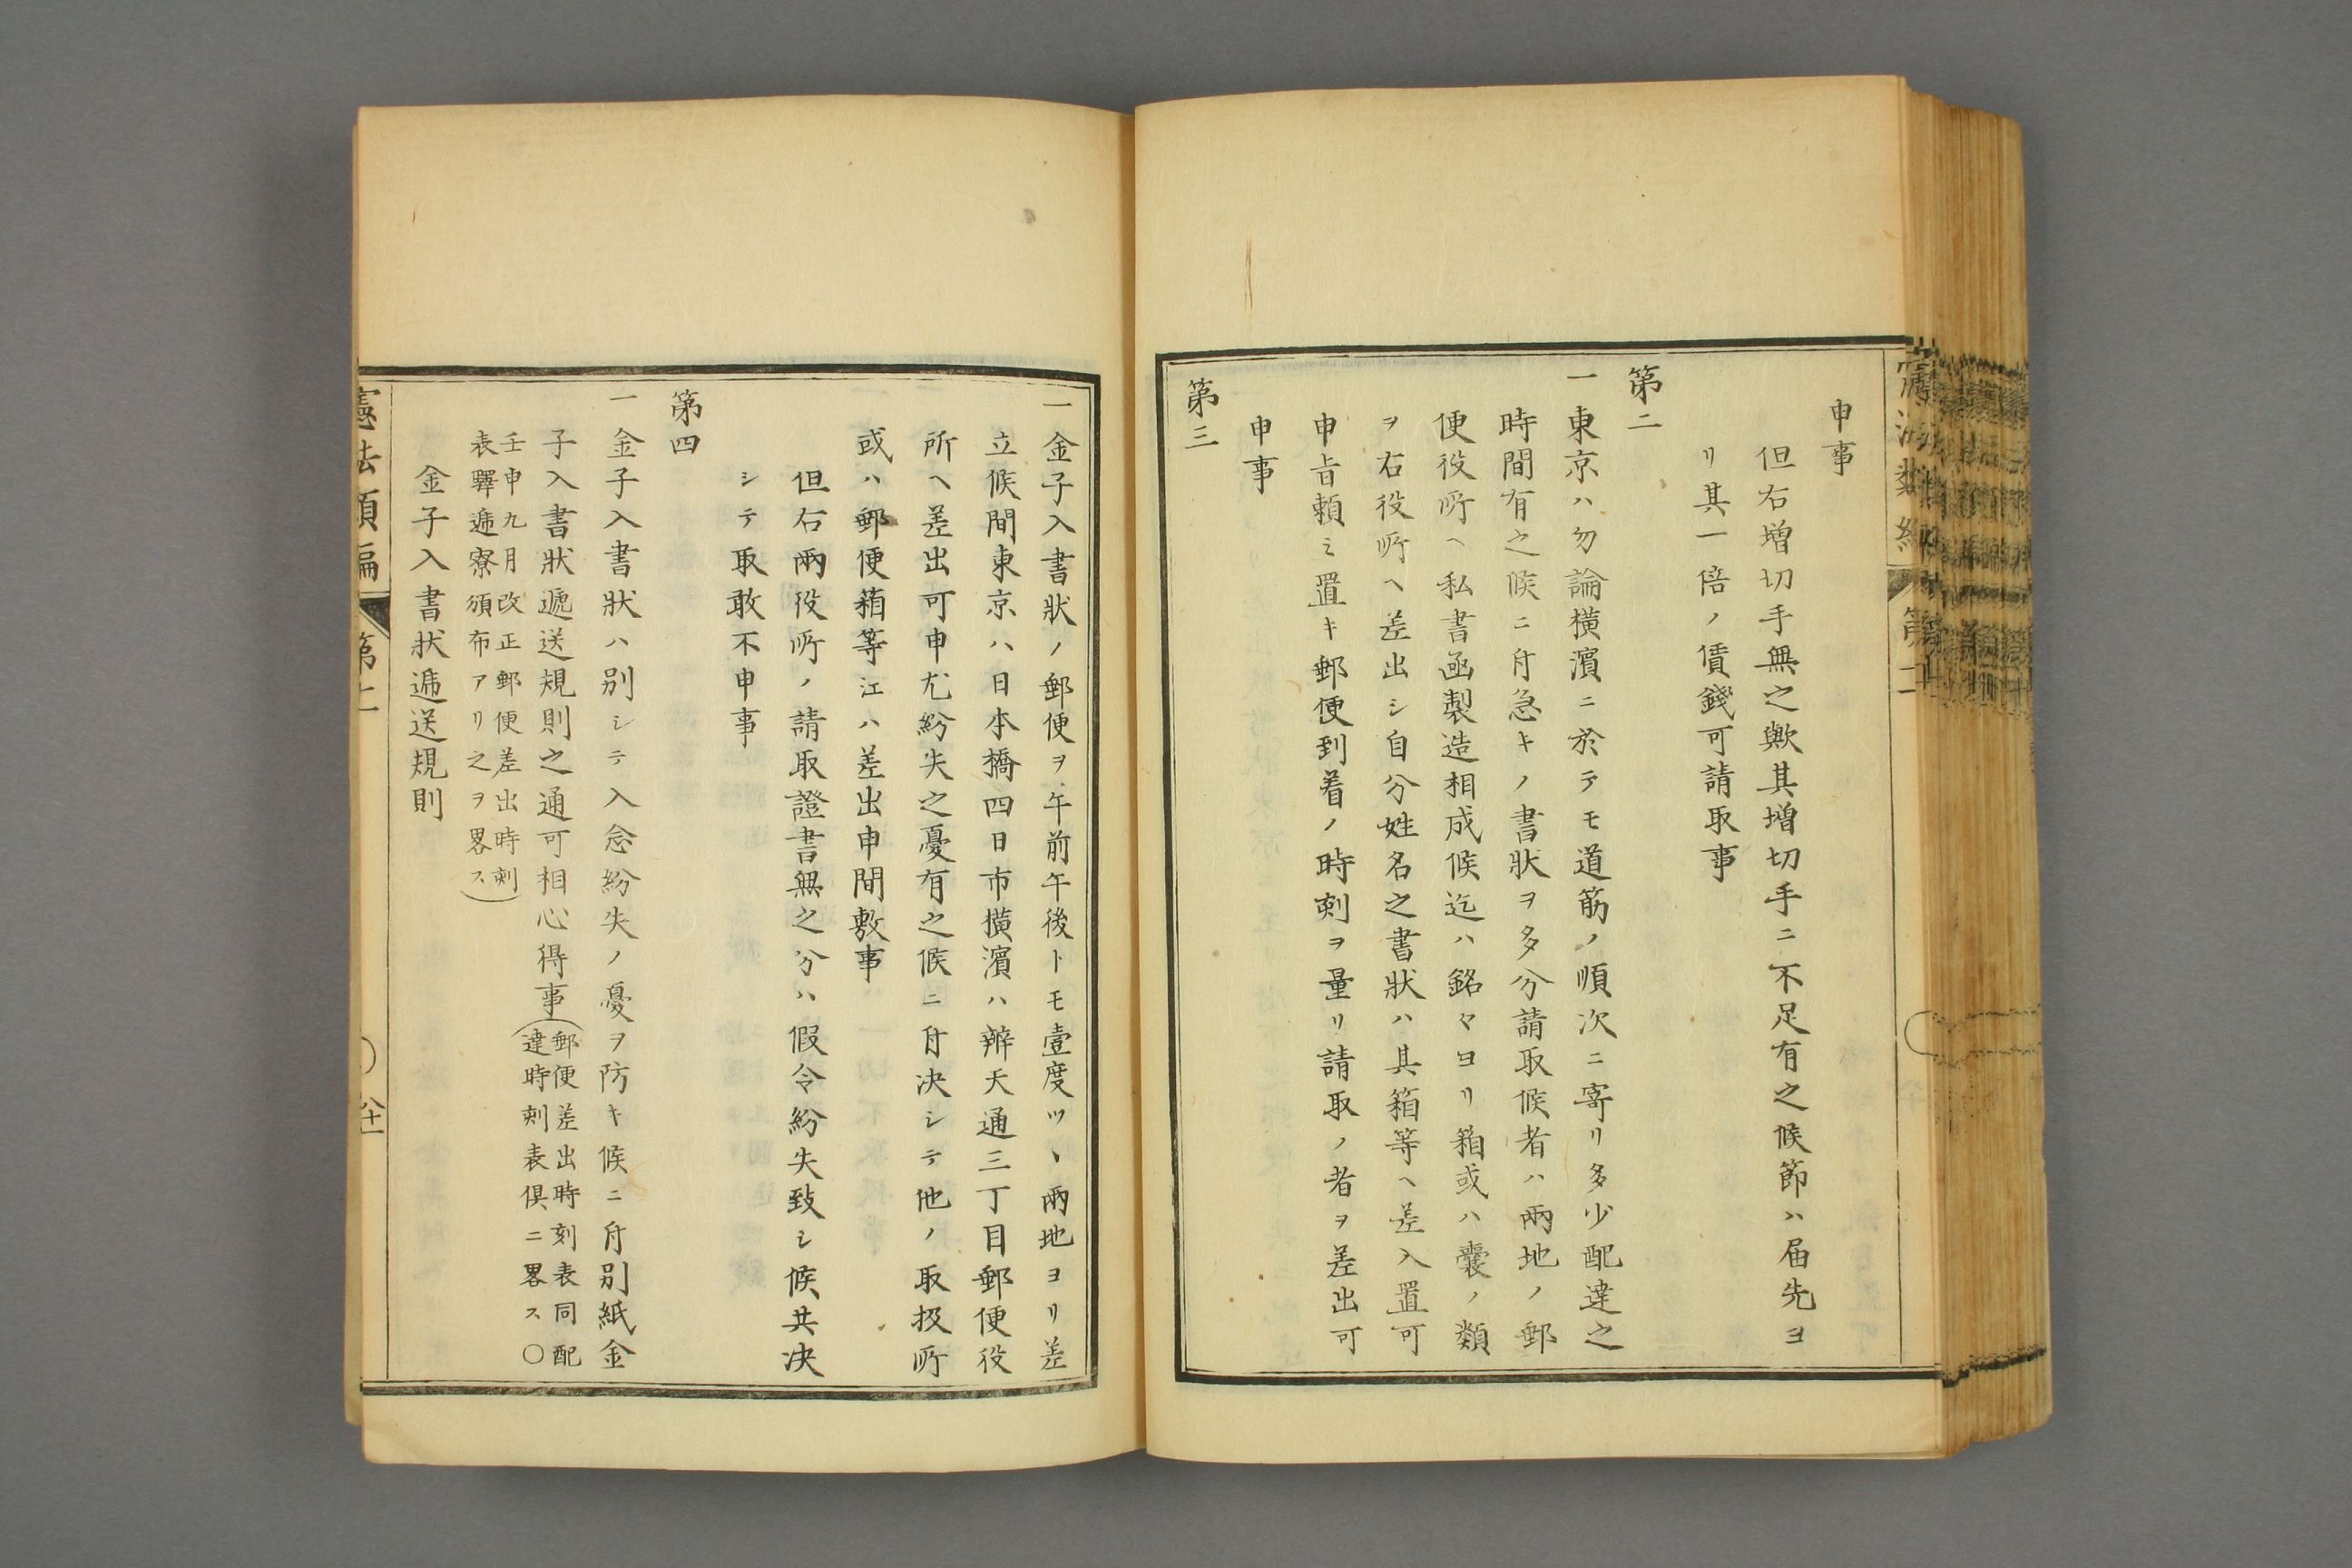 申事
但右増切手無之歟其増切手ニ不足有之候節ハ届先ヨ
リ其一倍ノ賃錢可請取事
第二
一東京ハ勿論横濱ニ於テモ道筋ノ順次ニ寄リ多少配達之
時間有之候ニ付急キノ書狀ヲ多分請取候者ハ兩地ノ郵
便役所ヘ私書凾製造相成候迄ハ銘々ヨリ箱或ハ嚢ノ類
ヲ右役所ヘ差出シ自分姓名之書狀ハ其箱等ヘ差入置可
申旨頼ミ置キ郵便到着ノ時刻ヲ量リ請取ノ者ヲ差出可
申事
第三
一金子入書狀ノ郵便ヲ午前午後トモ壹度ツヽ兩地ヨリ差
立候間東京ハ日本橋四日市橫濱ハ辨天通三丁目郵便役
所ヘ差出可申尤紛失之憂有之候ニ付决シテ他ノ取扱所
或ハ郵便箱等江ハ差出申間敷事
但右兩役所ノ請取證書無之分ハ假令紛失致シ候共决
シテ取敢不申事
第四
一金子入書狀ハ別シテ入念紛失ノ憂ヲ防キ候ニ付別紙金
子入書狀遞送規則之通可相心得事(郵便差出時刻表同配
達時刻表俱ニ畧ス〇
壬申九月改正郵便差出時刻
表驛遞寮頒布アリ之ヲ畧ス)
金子入書狀遞送規則
憲法類編
第二